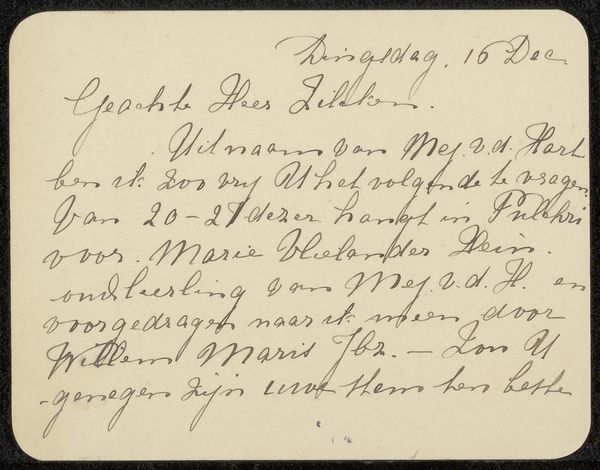 Dingsdag, 16 Dec.
Geachte Heer Zilcken.
Uit naam van Mej. v.d. Hart
ben ik zoo vry U het volgende te vragen
Van 20-27 dezer hangt in Pulchri
voor. Marie Vlielander Hein.
oud leerling van Mej. v.d. H. en
voorgedragen naar ik meen door
Willem Maris Jbz. — Zou U
genegen zijn uwe stem ten beste